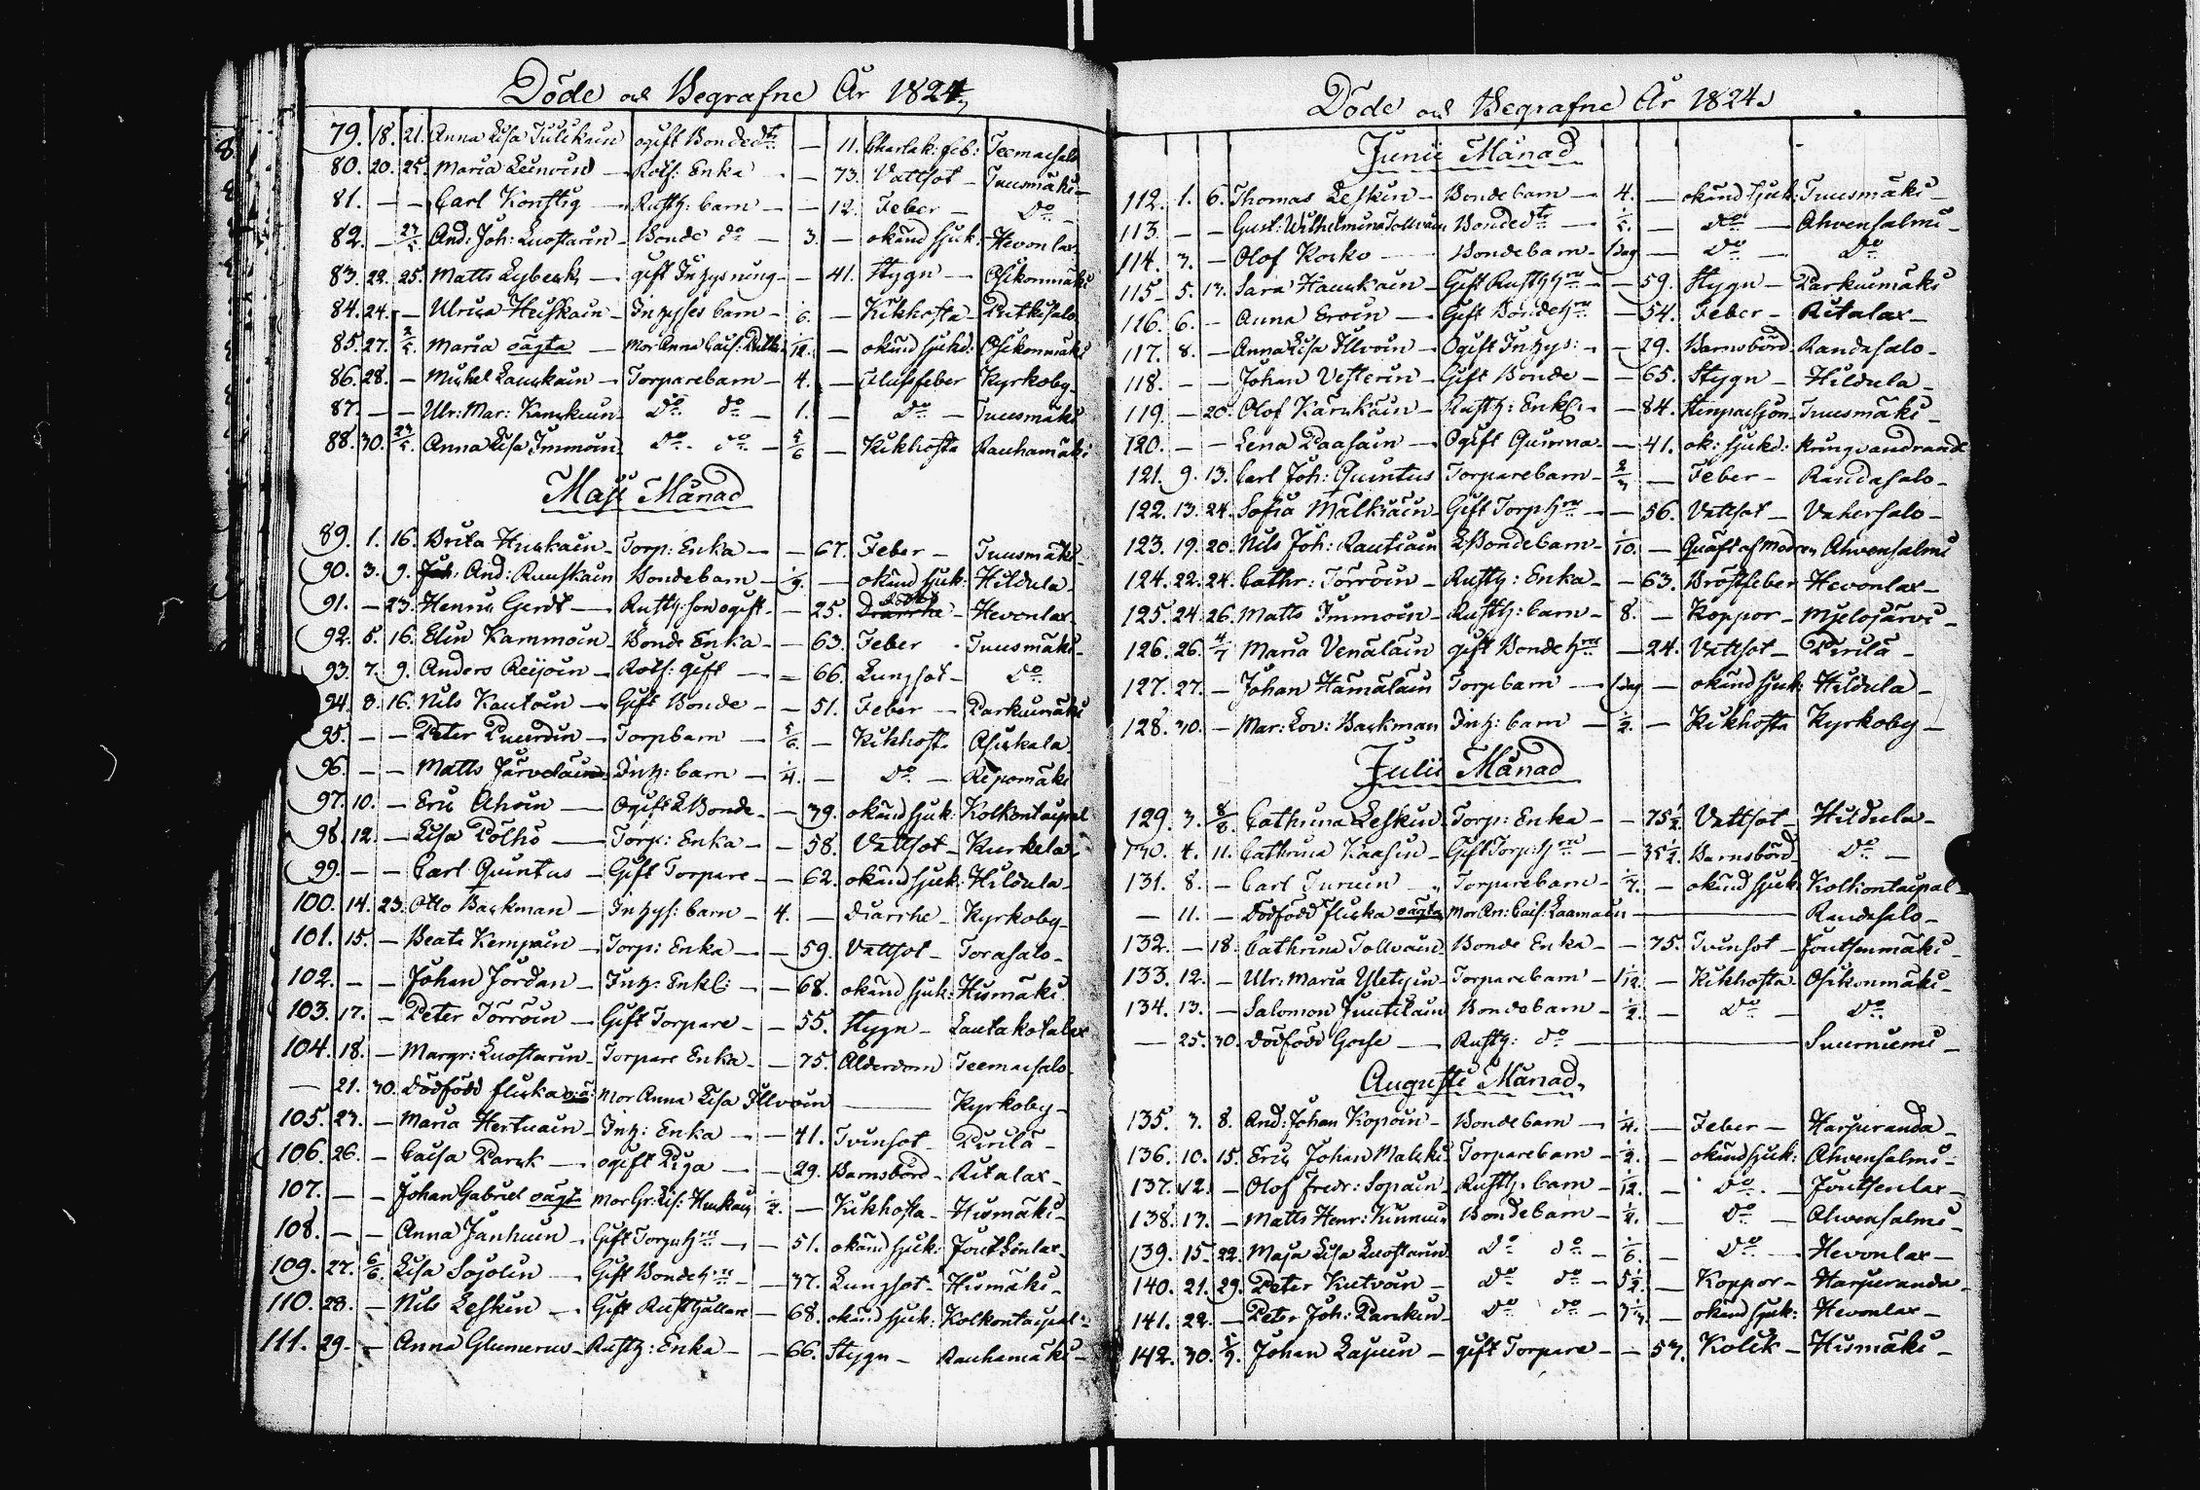 Döde och Begrafne År 1824.
79. 18. 21. Anna Lisa Tulikain ogift Bondedtr — 11. Charlak: feb: Teemasalo
80. 20. 25. Maria Leinoin — Rotf: Enka — 73. Vattsot — Tuusmäki —
81. — — Carl Konstig — Rusth: barn — — 12. Feber — Do —
82. — 23/5 And: Joh: Luostarin — Bonde do — 3. — okänd sjuk: Hevonlax
83. 22. 25. Matts Lyberk — gift Inhysning — — 41. Stygn — Osikonmäki
84. 24. — Ulrica Heiskain — Inhyses barn — 1/6. — Kikhosta — Putkisalo
85. 27. 2/5. Maria oägta — Mor Anna Cais: 1/12. — okänd sjukd: Osikonmäki
86. 28. — Michel Lauskain — Torparebarn — 4. — feber Kyrkoby
87. — — Ulr: Mar: Do do — 1. — Do — Tuusmäki
88. 30. 23/5. Anna Lisa Immoin Do do — 5/6 — Kikhosta Rauhamäki
Maji Månad
89. 1. 16. Brita Huskain — Torp: Enka — — 67. Feber — Tuusmäki —
90. 3. 9. And: Ruuskain Bondebarn — 1/9. — okänd sjuk: Hildula
91. — 23. Henric Gerdt — Rusth: son ogift — — 25. — Hevonlax
92. 5. 16. Elin Kammoin — Bonde Enka — — 63. Feber — Tuusmäki —
93. 7. 9. Anders Reijoin — Rotf: gift — — 66. Lungsot — Do
94. 8. 16. Nils Kautoin — Gift Bonde — — 51. Feber — Parkuinmäki
95. — — Peter — Torpbarn — 5/6. — Kikhosta Osikala
96. — — Matts Järveläin Inh: barn — 1/4. — Do — Repomäki
97. 10. — Eric Ahoin — Ogift Bonde — — 39. okänd sjuk: Kolkontaipal
98. 12. — Lisa Pölhö — Torp: Enka — — 58. Vattsot — Kurkela —
99. — — Carl Quintus — Gift Torpare — — 62. okänd sjuk: Hildula —
100. 14. 23. Otto Backman — Inhys: barn — 4. — Diarrhe — Kyrkoby —
101. 15. — Beata Kempain — Torp: Enka — — 59. Vattsot — Torasalo —
102. — — Johan Jordan — Inh: Enkl: — — 68. okänd sjuk: Hismäki
103. 17. — Peter Törröin — Gift Torpare — — 55. Stygn — Lautakotalax
104. 18. — Margr: Luostarin — Torpare Enka — — 75. Ålderdom Teemasalo —
— 21. 30. Dödfödd flicka Mor Anna Lisa Illvoin — Kyrkoby —
105. 23. — Maria Hertuain — Inh: Enka — — 41. Tvinsot — Pirilä —
106. 26. — Caisa Parck — ogift Piga — — 29. Barnsbörd — Ritalax —
107. — — Johan Gabriel oägt Mor Gr: Lis: Huskain — Kikhosta — Hismäki —
108. — — Anna Janhuin — Gift Torpuhru — — 51. okänd sjuk: Joutsenlax
109. 27. 6/6. Lisa Sojolin — Gift Bondehru — — 37. Lungsot — Hismäki —
110. 28. — Nils Leskin — Gift Rusthållare — 68. okänd sjuk: Kolkontaipal —
111. 29. — Anna Glumerus — Rusth: Enka — — 66. Stygn — Rauhamäki —
Döde och Begrafne År 1824.
Junii Månad
112. 1. 6. Thomas Leskin — Bondebarn — 4. — okänd sjuk: Tuusmäki —
113. — — Gust: Wilhelmina Tollvain Bondedtr — 1/5. — Do — Ahvensalmi —
114. 3. — Olof Korko — Bondebarn — 1 dag — Do — Do
115. 5. 13. Sara Hauskain — Gift Rusthhru — — 59. Stygn — Parkuinmäki
116. 6. — Anna Eroin — Gift Bondehru — 54. Feber — Ritalax —
117. 8. — Anna Lisa Illvoin — Ogift Inhys: — — 29. Barnsbörd Randasalo —
118. — — Johan Vesterin — Gift Bonde — — 65. Stygn — Hildula —
119. — 20. Olof Kärkäin — Rusth: Enkl: — — 84. Tuusmäki —
120. — — Lena Paasain — Ogift Quinna — — 41. ok: sjukd: Kringvandrande
121. 9. 13. Carl Joh: Quintus Torparebarn — 2/3 — Feber — Randasalo —
122. 13. 24. Sofia Malkiain — Gift Torphru — — 56. Vattsot — Vahersalo —
123. 19. 20. Nils Joh: Rautiain Bondebarn — 1/10. — Quäft af Modren Ahvensalmi
124. 22. 24. Cathr: Törröin — Rusth: Enka — — 63. Bröstfeber Hevonlax —
125. 24. 26. Matts Immoin — Rusth: barn — 8. — Koppor — Mjelojärvi —
126. 26. 4/7 Maria Venäläin gift Bondehru — 24. Vattsot — Pirilä —
127. 27. — Johan Hämäläin Torpbarn — 1 dag — okänd sjuk: Hildula —
128. 30. — Mar: Lov: Backman Inh: barn — 1/2. — Kikhosta Kyrkoby —
Julii Månad
129. 3. 8/8. Cathrina Leskin Torp: Enka — — 75 1/2. Vattsot — Hildula —
130. 4. 11. Cathrina Kaasin — Gift Torp: hru — — 35 1/2. Barnsbörd Do —
131. 8. — Carl Turuin — Torparebarn — — okänd sjuk: Kolkontaipal —
— 11. — Dödfödd flicka oägta Mor An: Cais: Laamain — Randasalo —
132. — 18. Cathrina Tollvain Bonde Enka — — 75. Tvinsot — Joutsenmäki —
133. 12. — Ulr: Maria Yletyin — Torparebarn — 1/12. — Kikhosta Osikonmäki —
134. 13. — Salomon Juutilain Bondebarn — 1/2. — Do — Do
— 25. 30. Dödfödd Gosse — Rusth: do — Suurniemi —
Augusti Månad
135. 3. 8. And: Johan Kopoin — Bondebarn — 1/4. — Feber — Harjuranda —
136. 10. 15. Eric Johan Malski Torparebarn — 1/2. — okänd sjuk: Ahvensalmi —
137. 12. — Olof Fredr: Sopain — Rusth: barn — 1/12. — Do — Joutsenlax —
138. 13. — Matts Henr: Kinnuin Bondebarn — 1/2. — Do — Ahvensalmi —
139. 15. 22. Maja Lisa Luostarin Do do — 1/6. — Do — Hevonlax —
140. 21. 29. Peter Kutvoin — Do do — 5 1/2. — Koppor — Harjuranda —
141. 22. — Peter Joh: Parckin Do do — — okänd sjuk: Hevonlax —
142. 30. 5/9. Johan Lajuin — gift Torpare — — 53. Kolik — Hismäki —